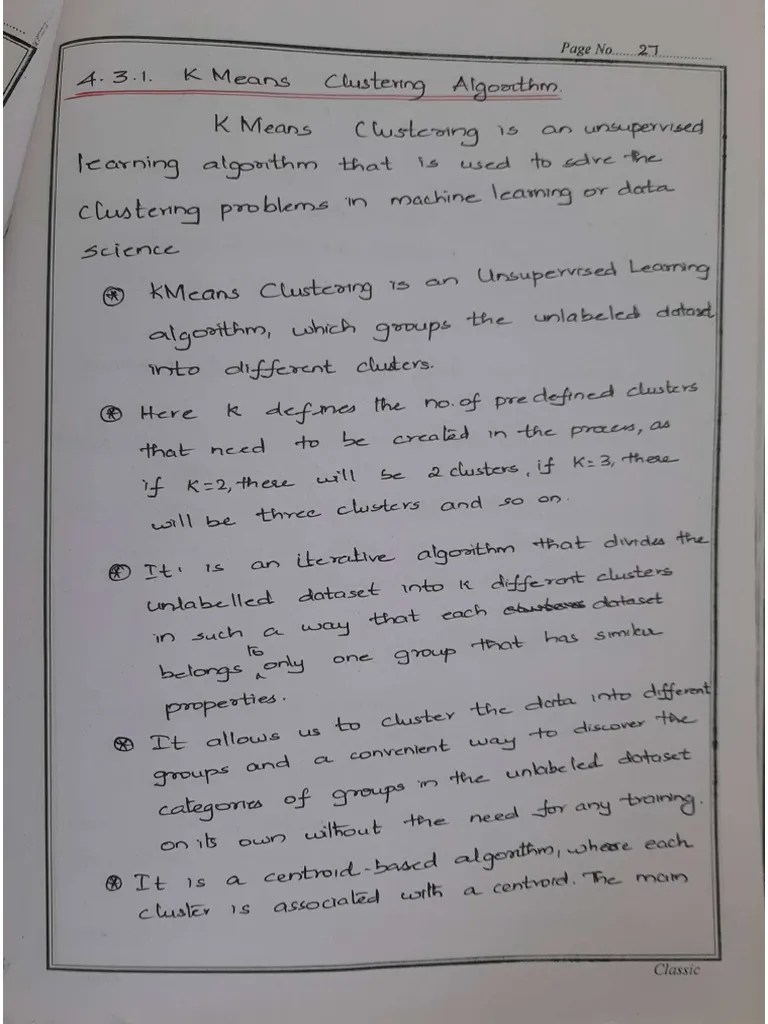 Page No.......27..............
4.3.1. K Means Clustering Algorithm.
K Means Clustering is an unsupervised
learning algorithm that is used to solve the
clustering problems in machine learning or data
science
⊛ KMeans Clustering is an Unsupervised Learning
algorithm, which groups the unlabeled dataset
into different clusters.
⊛ Here K defines the no. of predefined clusters
that need to be created in the process, as
if K=2, there will be 2 clusters, if K=3, there
will be three clusters and so on.
⊛ It is an iterative algorithm that divides the
unlabelled dataset into k different clusters
in such a way that each dataset
belongs to only one group that has similar
properties.
⊛ It allows us to cluster the data into different
groups and a convenient way to discover the
categories of groups in the unlabeled dataset
on its own without the need for any training.
⊛ It is a centroid-based algorithm, where each
cluster is associated with a centroid. The main
Classic